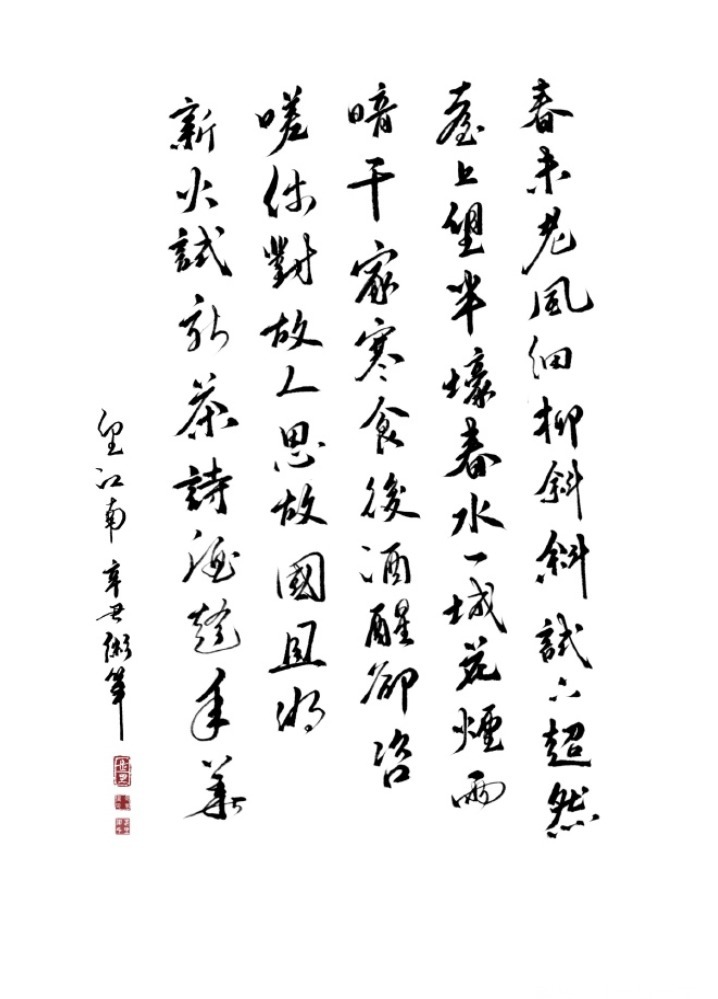 春未老風細柳斜斜試上超然
臺上望半壕春水一城花煙雨
暗千家寒食後酒醒卻咨
嗟休對故人思故國且將
新火試新茶詩酒趁年華
望江南 辛丑 筆